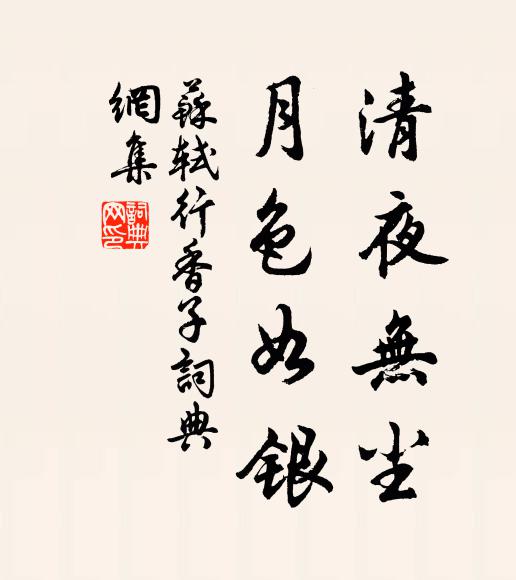 清夜無尘
月色如銀
蘇軾行香子詞典
網集
詞典
网印